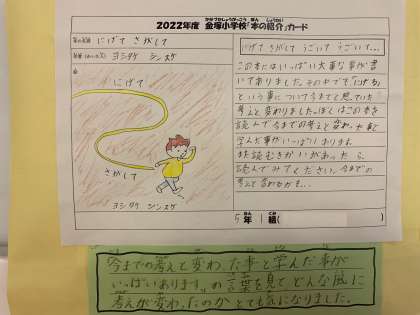 2022年度 金塚小学校「本の紹介」カード
にげて さがして
ヨシタケ シンスケ
にげて
さがして
ヨシタケ シンスケ
にげて さがして うごいて うごいて…
この本にはいっぱい大事な事が書
いてありました。その中でも「にげる」
という事について今までと思っていた
考えと変わりました。ぼくはこの本を
読んで今までの考えと変わった事と
学んだ事がいっぱいあります。
また読むきかいがあったら
読んでみてください。今までの
考えと変わるかも…
5年 組(
今までの考えと変わった事と学んだ事が
いっぱいあります。の言葉を見てどんな風に
考えが変わったのかとても気になりました。